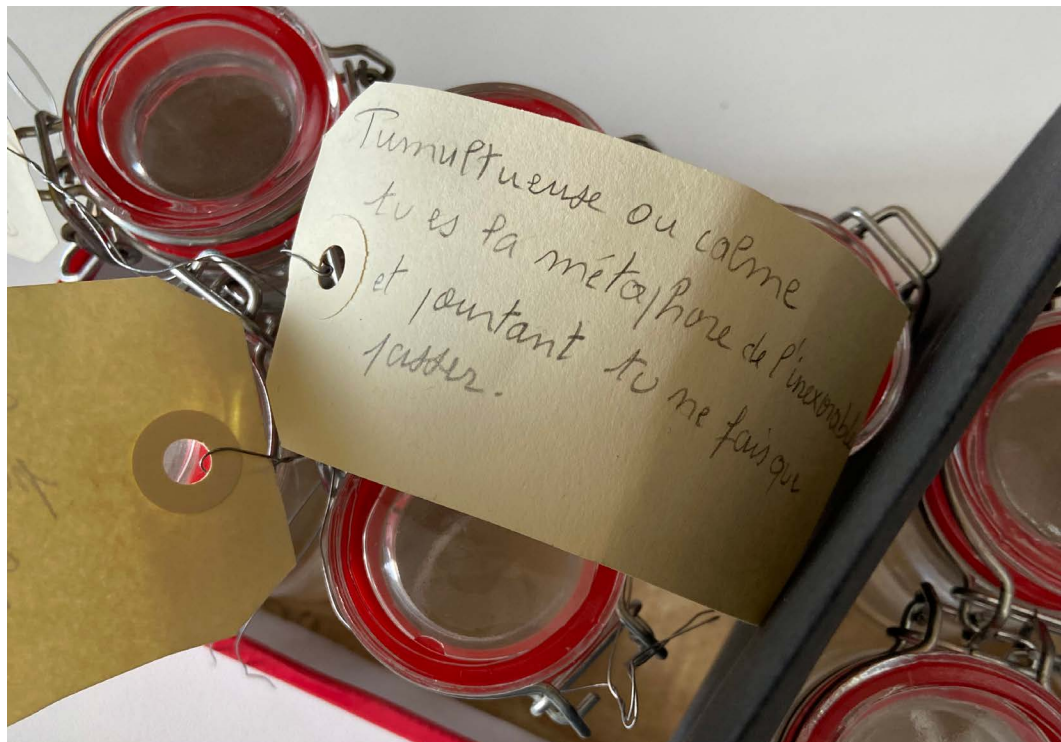 Tumultueuse ou calme
tu es la métaphore de l'inexorable
et pourtant tu ne fais que
passer.